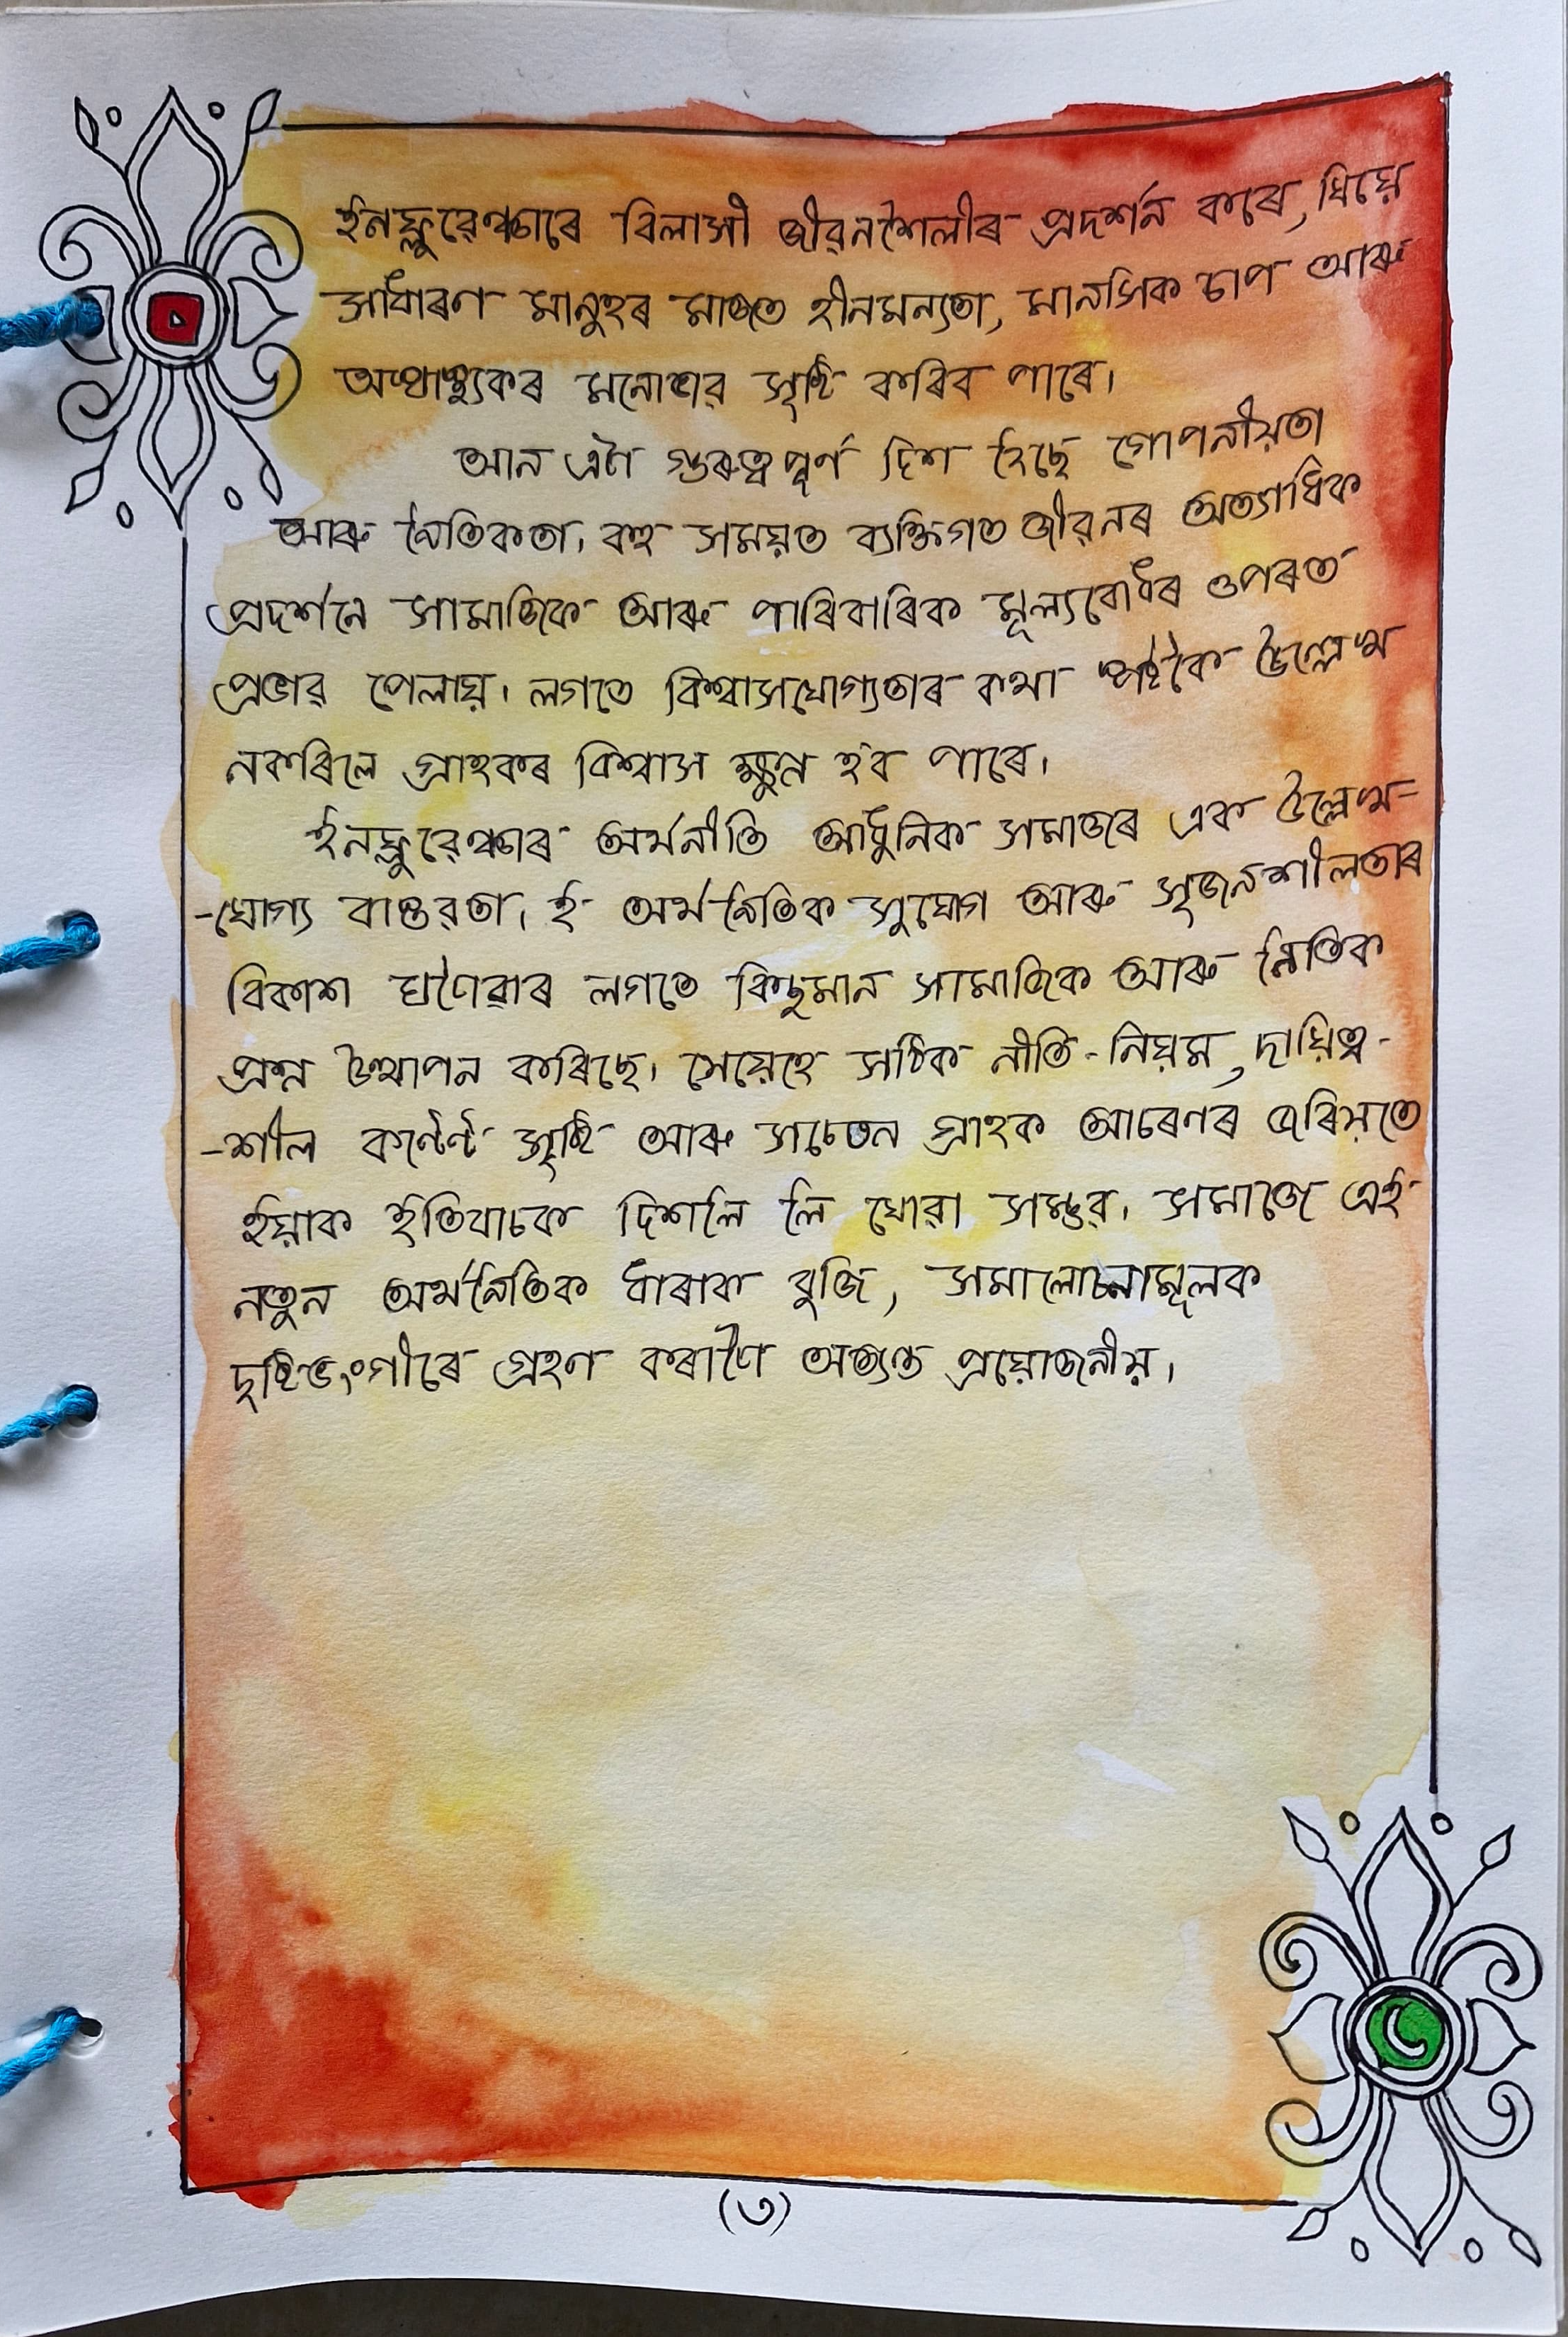 ইনফ্লুৱেঞ্চাৰে বিলাসী জীৱনশৈলীৰ প্ৰদৰ্শন কৰে, যিয়ে
সাধাৰণ মানুহৰ মাজত হীনমন্যতা, মানসিক চাপ আৰু
অস্বাস্থ্যকৰ মনোভাৱ সৃষ্টি কৰিব পাৰে।
আন এটা গুৰুত্বপূৰ্ণ দিশ হৈছে গোপনীয়তা
আৰু নৈতিকতা। বহু সময়ত ব্যক্তিগত জীৱনৰ অত্যাধিক
প্ৰদৰ্শনে সামাজিক আৰু পাৰিবাৰিক মূল্যবোধৰ ওপৰত
প্ৰভাৱ পেলায়। লগতে বিশ্বাসযোগ্যতাৰ কথা স্পষ্টকৈ উল্লেখ
নকৰিলে গ্ৰাহকৰ বিশ্বাস ক্ষুন্ন হ'ব পাৰে।
ইনফ্লুৱেঞ্চাৰ অৰ্থনীতি আধুনিক সমাজৰে এক উল্লেখ-
-যোগ্য বাস্তৱতা। ই অৰ্থনৈতিক সুযোগ আৰু সৃজনশীলতাৰ
বিকাশ ঘটোৱাৰ লগতে কিছুমান সামাজিক আৰু নৈতিক
প্ৰশ্ন উত্থাপন কৰিছে। সেয়েহে সঠিক নীতি-নিয়ম, দায়িত্ব-
-শীল কণ্টেণ্ট সৃষ্টি আৰু সচেতন গ্ৰাহক আচৰণৰ জৰিয়তে
ইয়াক ইতিবাচক দিশলৈ লৈ যোৱা সম্ভৱ। সমাজে এই
নতুন অৰ্থনৈতিক ধাৰাক বুজি, সমালোচনামূলক
দৃষ্টিভংগীৰে গ্ৰহণ কৰাটো অত্যন্ত প্ৰয়োজনীয়।
(৩)